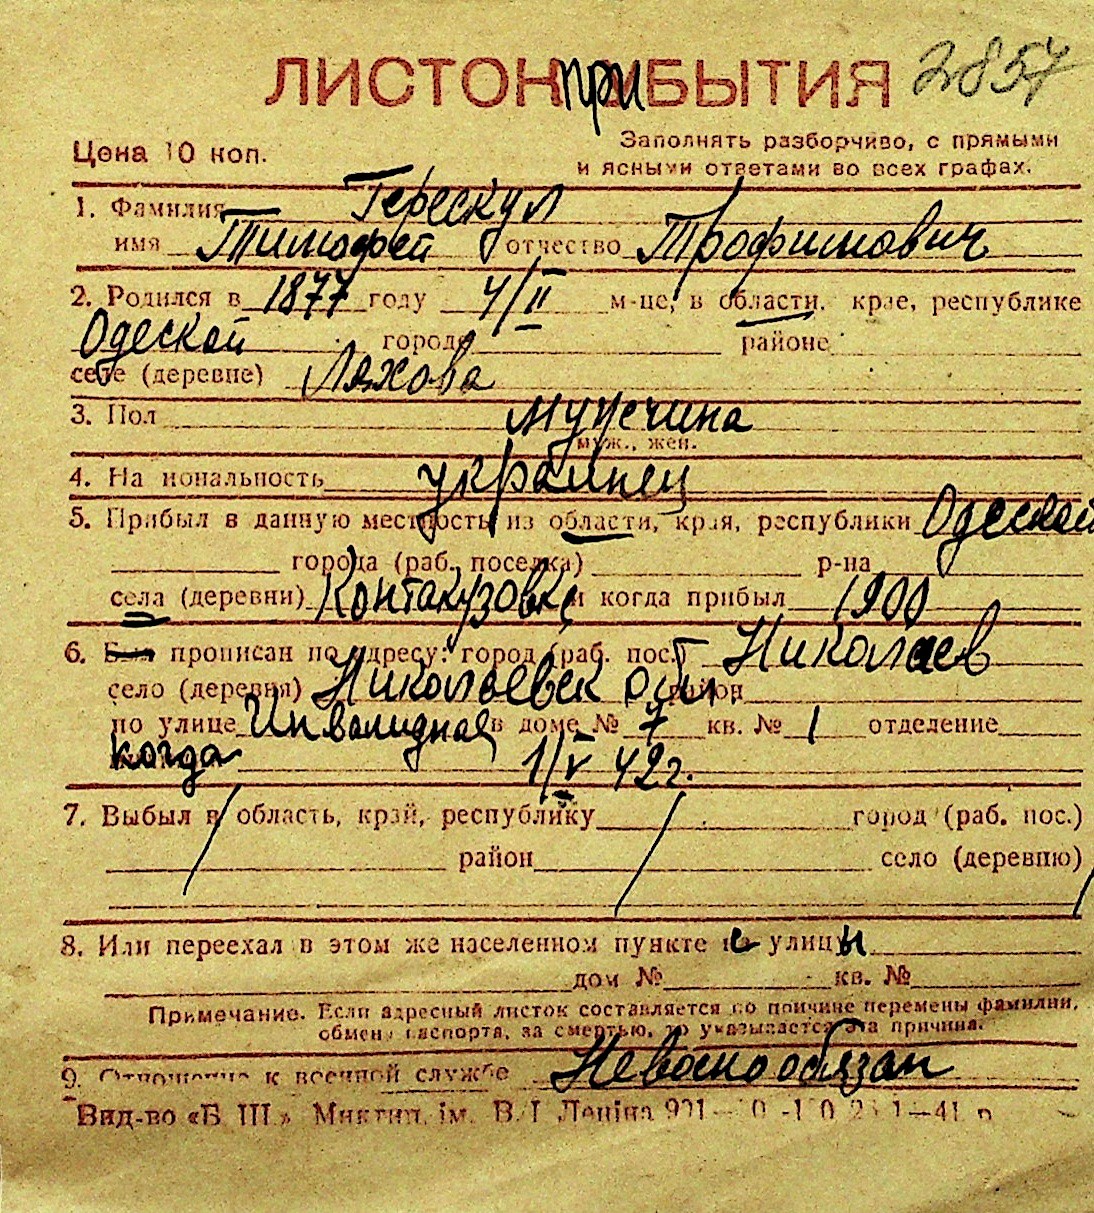 ЛИСТОК ПРИБЫТИЯ 2857
Цена 10 коп.
Заполнять разборчиво, с прямыми
и ясными ответами во всех графах.
1. Фамилия Терескул
имя Тимофей отчество Трофимович
2. Родился в 1877 году 4/II м-це, в области, крае, республике
Одеской городе районе
селе (деревне) Ляхова
3. Пол мущечина
муж., жен.
4. Национальность украинец
5. Прибыл в данную местность из области, края, республики Одеской
города (раб. поселка) р-на
села (деревни) Контакузовка и когда прибыл 1900
6. Был прописан по адресу: город (раб. пос.) Николаев
село (деревня) Николаевск обл. район
по улице Инвалидная в доме № 7 кв. № 1 отделение
когда 1/V 42 г.
7. Выбыл в область, край, республику город (раб. пос.)
район село (деревню)
8. Или переехал в этом же населенном пункте с улицы
дом № кв. №
Примечание. Если адресный листок составляется по причине перемены фамилии,
обмена паспорта, за смертью, то указывается эта причина.
9. Отношение к военной службе Невоенообязан
Вид-во «Б. Ш.» Миктип. ім. В. І. Леніна